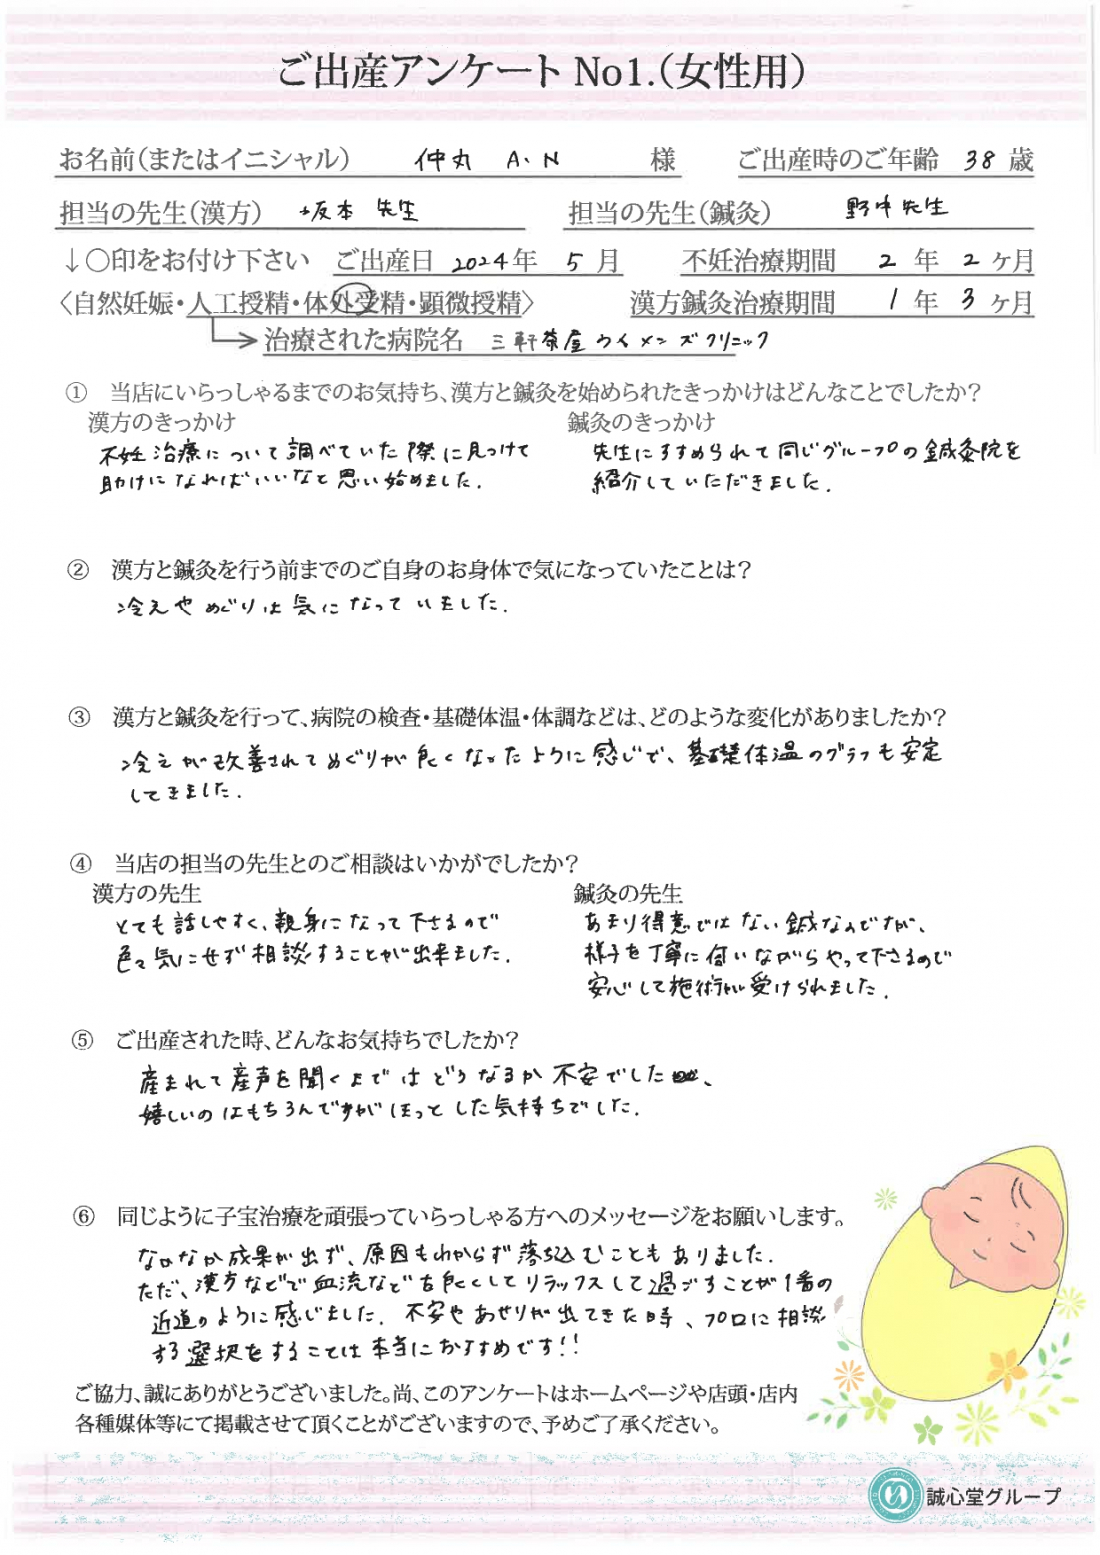 ご出産アンケート No1.(女性用)
お名前(またはイニシャル) 仲丸 A.N 様 ご出産時のご年齢 38 歳
担当の先生(漢方) 坂本 先生 担当の先生(鍼灸) 野中先生
↓○印をお付け下さい ご出産日 2024年 5 月 不妊治療期間 2 年 2 ヶ月
〈自然妊娠・人工授精・体外受精・顕微授精〉 漢方鍼灸治療期間 1 年 3 ヶ月
治療された病院名 三軒茶屋ウィメンズクリニック
① 当店にいらっしゃるまでのお気持ち、漢方と鍼灸を始められたきっかけはどんなことでしたか?
漢方のきっかけ 鍼灸のきっかけ
不妊治療について調べていた際に見つけて
助けになればいいなと思い始めました.
先生にすすめられて同じグループの鍼灸院を
紹介していただきました.
② 漢方と鍼灸を行う前までのご自身のお身体で気になっていたことは?
冷えやめぐりは気になっていました.
③ 漢方と鍼灸を行って、病院の検査・基礎体温・体調などは、どのような変化がありましたか?
冷えが改善されてめぐりが良くなったように感じで、基礎体温のグラフも安定
してきました.
④ 当店の担当の先生とのご相談はいかがでしたか?
漢方の先生 鍼灸の先生
とても話しやすく、親身になって下さるので
色々気にせず相談することが出来ました.
あまり得意ではない鍼なんですが、
様子を丁寧に伺いながらやって下さるので
安心して施術が受けられました.
⑤ ご出産された時、どんなお気持ちでしたか?
産まれて産声を聞くまではどうなるか不安でした、
嬉しいのはもちろんですがほっとした気持ちでした.
⑥ 同じように子宝治療を頑張っていらっしゃる方へのメッセージをお願いします。
なかなか成果が出ず、原因もわからず落ち込むこともありました.
ただ、漢方などで血流などを良くしてリラックスして過ごすことが1番の
近道のように感じました. 不安やあせりが出てきた時、プロに相談
する選択をすることは本当におすすめです!!
ご協力、誠にありがとうございました。尚、このアンケートはホームページや店頭・店内
各種媒体等にて掲載させて頂くことがございますので、予めご了承ください。
誠心堂グループ